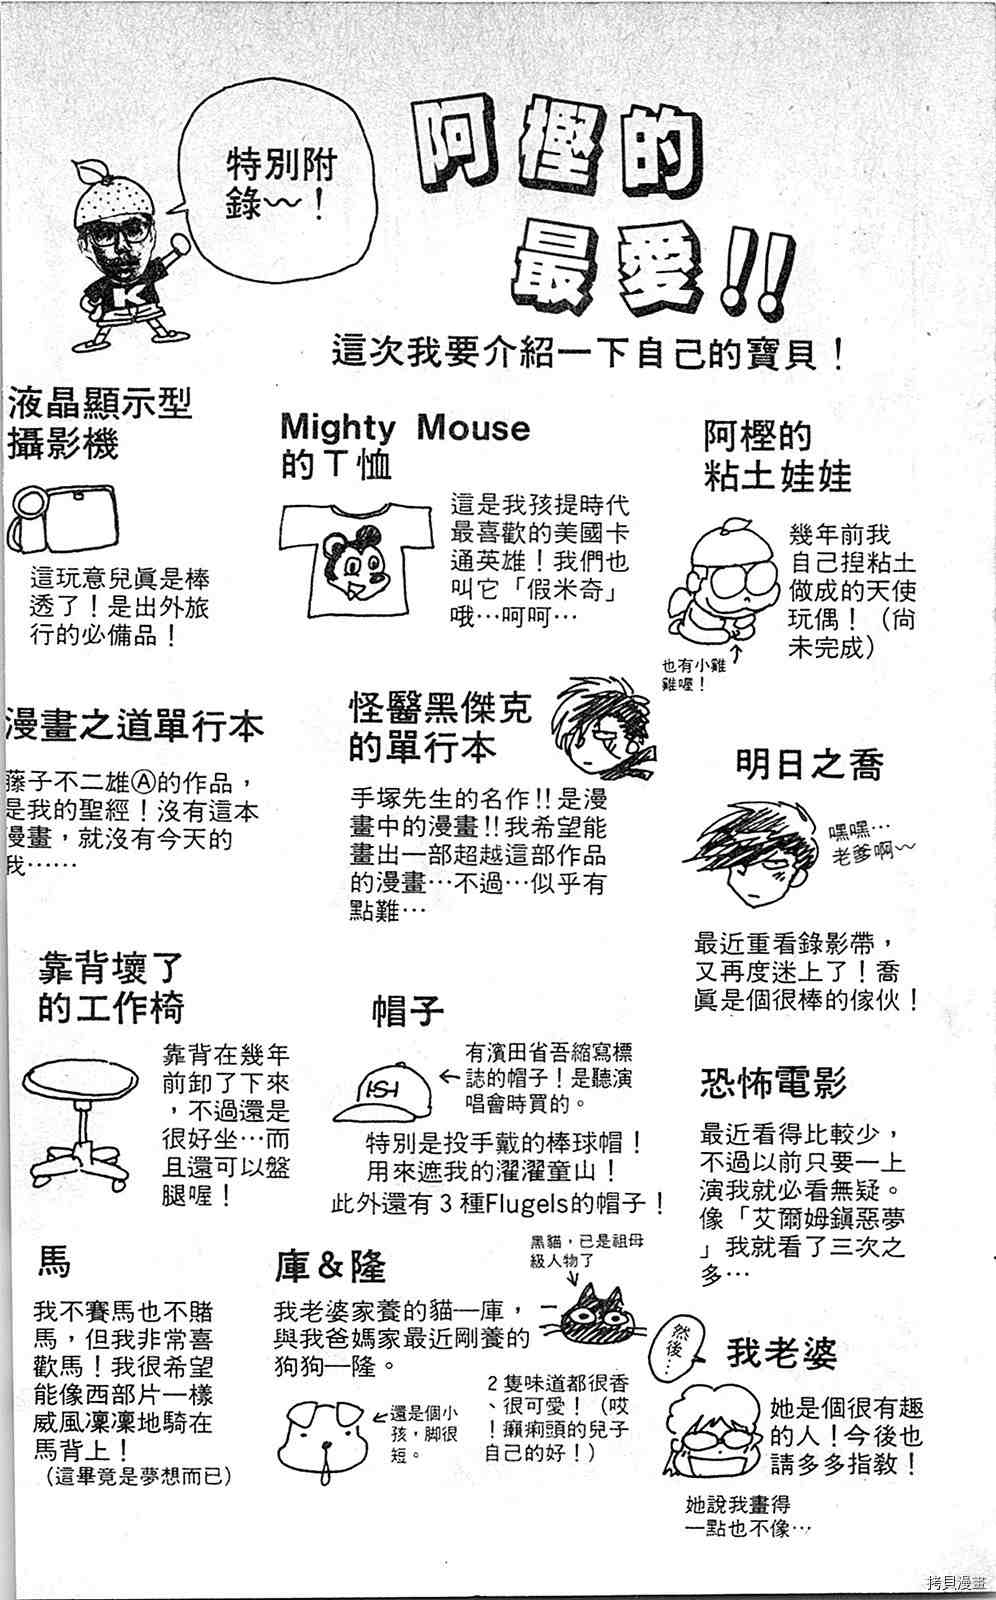 特別附
錄～！
阿樫的
最愛!!
這次我要介紹一下自己的寶貝！
液晶顯示型
攝影機
這玩意兒眞是棒
透了！是出外旅
行的必備品！
Mighty Mouse
的T恤
這是我孩提時代
最喜歡的美國卡
通英雄！我們也
叫它「假米奇」
哦…呵呵…
阿樫的
粘土娃娃
幾年前我
自己捏粘土
做成的天使
玩偶！（尚
未完成）
也有小雞
雞喔！
漫畫之道單行本
藤子不二雄Ⓐ的作品，
是我的聖經！沒有這本
漫畫，就沒有今天的
我……
怪醫黑傑克
的單行本
手塚先生的名作!!是漫
畫中的漫畫!!我希望能
畫出一部超越這部作品
的漫畫…不過…似乎有
點難…
明日之喬
嘿嘿…
老爹啊～
最近重看錄影帶，
又再度迷上了！喬
眞是個很棒的傢伙！
靠背壞了
的工作椅
靠背在幾年
前卸了下來
，不過還是
很好坐…而
且還可以盤
腿喔！
帽子
HSH
有濱田省吾縮寫標
誌的帽子！是聽演
唱會時買的。
特別是投手戴的棒球帽！
用來遮我的濯濯童山！
此外還有3種Flugels的帽子！
恐怖電影
最近看得比較少，
不過以前只要一上
演我就必看無疑。
像「艾爾姆鎭惡夢
」我就看了三次之
多…
馬
我不賽馬也不賭
馬，但我非常喜
歡馬！我很希望
能像西部片一樣
威風凜凜地騎在
馬背上！
（這畢竟是夢想而已）
庫&隆
我老婆家養的貓—庫，
與我爸媽家最近剛養的
狗狗—隆。
黑貓，已是祖母
級人物了
還是個小
孩，脚很
短。
2隻味道都很香
、很可愛！（哎
！癩痢頭的兒子
自己的好！）
然後…
我老婆
她是個很有趣
的人！今後也
請多多指敎！
她說我畫得
一點也不像…
拷貝漫畫